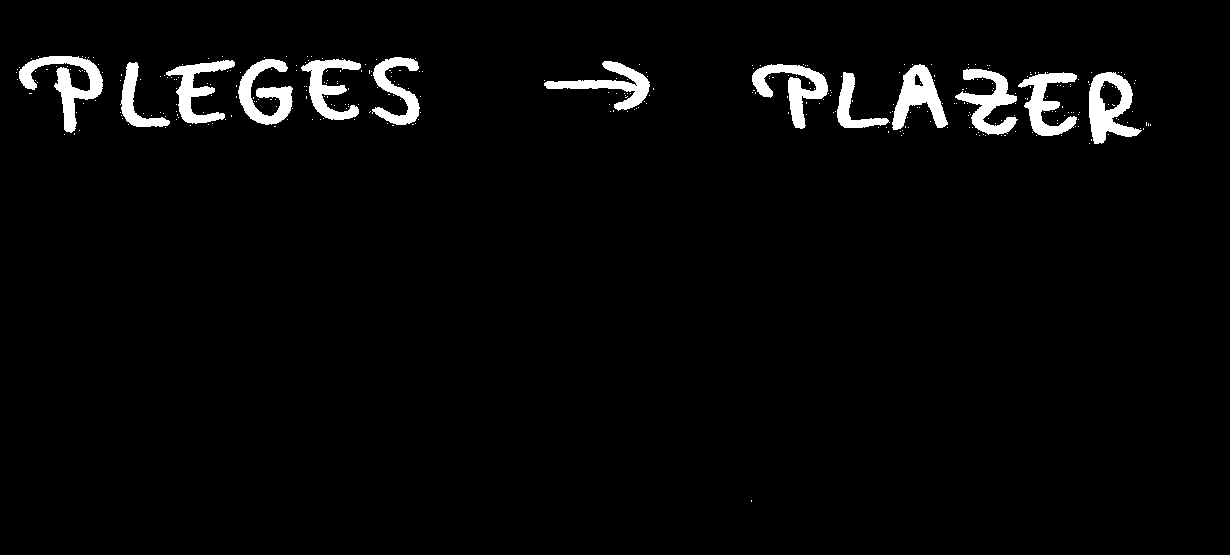 PLEGES → PLAZER